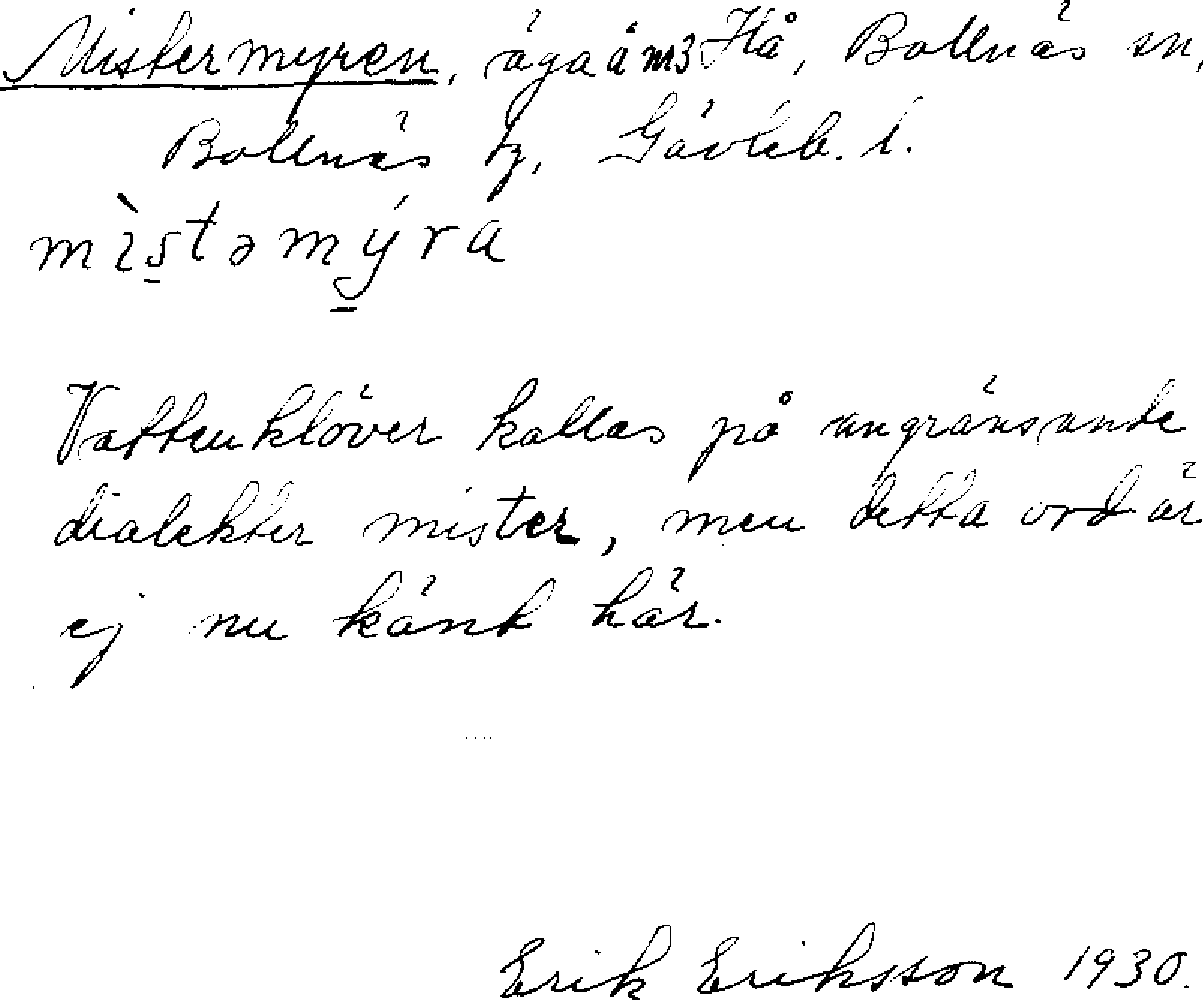 Mistermyren, äga å m3 Hå, Bollnäs sn,
Bollnäs tg, Gävleb. l.
mìstəmýra
Vattenklöver kallas på angränsande
dialekter mister, men detta ord är
ej nu känt här.
Erik Eriksson 1930.